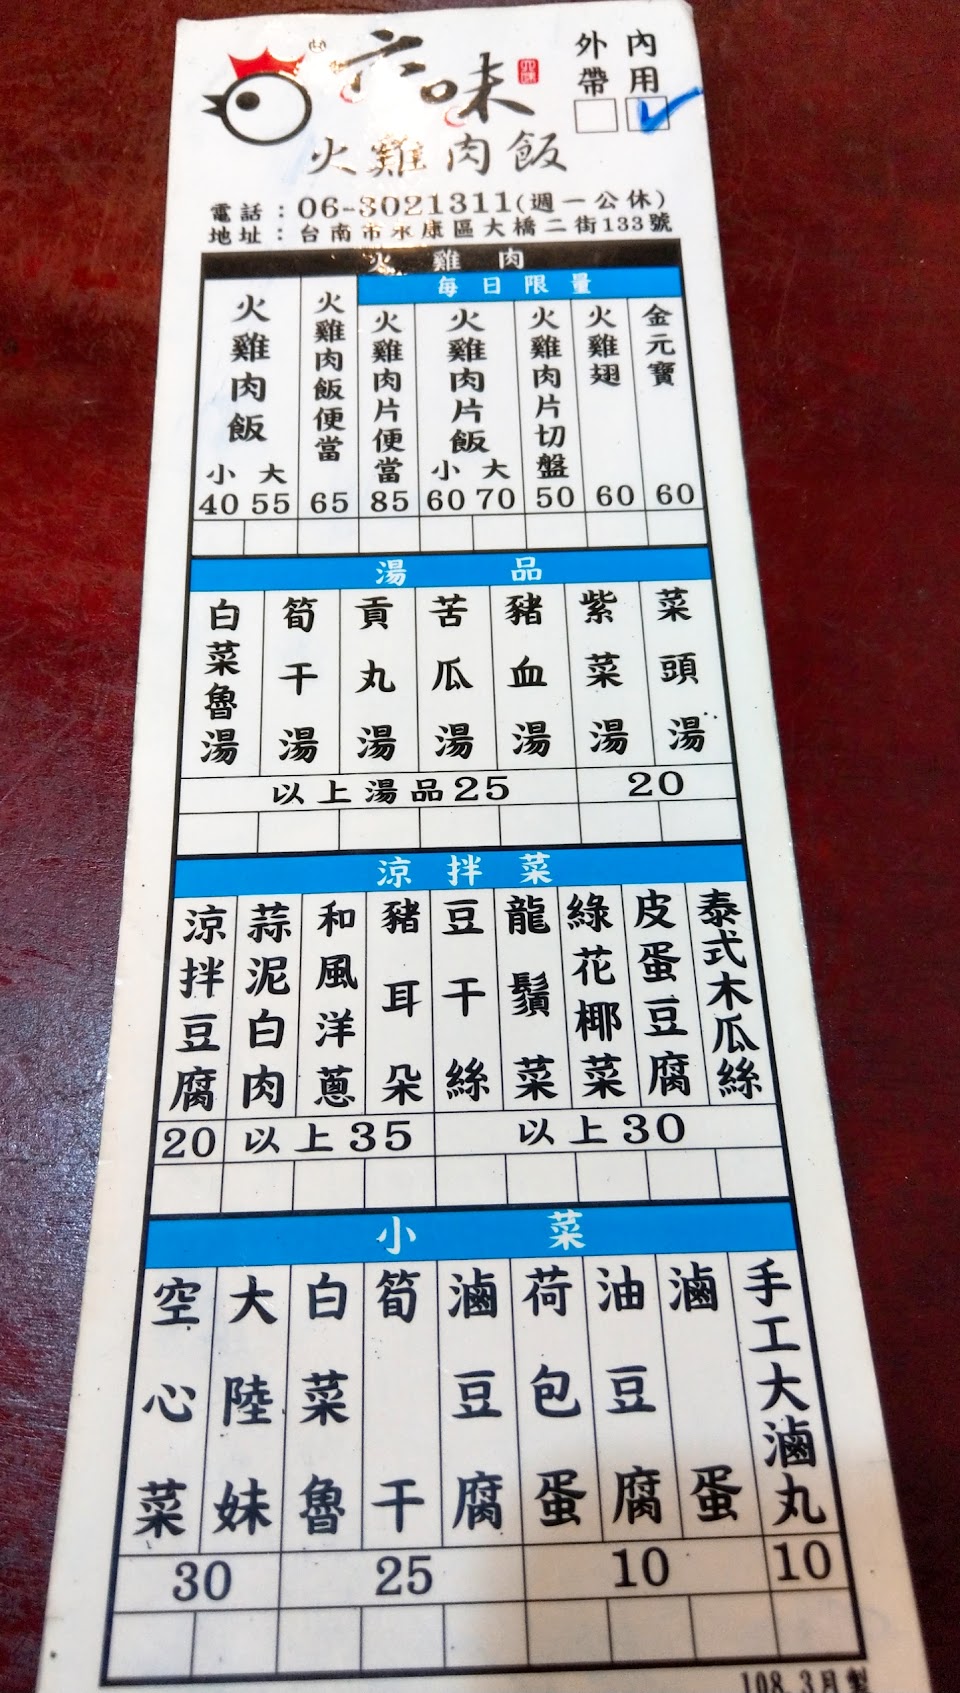 六味
火雞肉飯
外帶 內用
電話：06-3021311(週一公休)
地址：台南市永康區大橋二街133號
火雞肉
每日限量
火雞肉飯 小 大
火雞肉飯便當
火雞肉片便當
火雞肉片飯 小 大
火雞肉片切盤
火雞翅
金元寶
40 55 65 85 60 70 50 60 60
湯品
白菜魯湯
筍干湯
貢丸湯
苦瓜湯
豬血湯
紫菜湯
菜頭湯
以上湯品25 20
涼拌菜
涼拌豆腐
蒜泥白肉
和風洋蔥
豬耳朵
豆干絲
龍鬚菜
綠花椰菜
皮蛋豆腐
泰式木瓜絲
20 以上35 以上30
小菜
空心菜
大陸妹
白菜魯
筍干
滷豆腐
荷包蛋
油豆腐
滷蛋
手工大滷丸
30 25 10 10
108.3月製